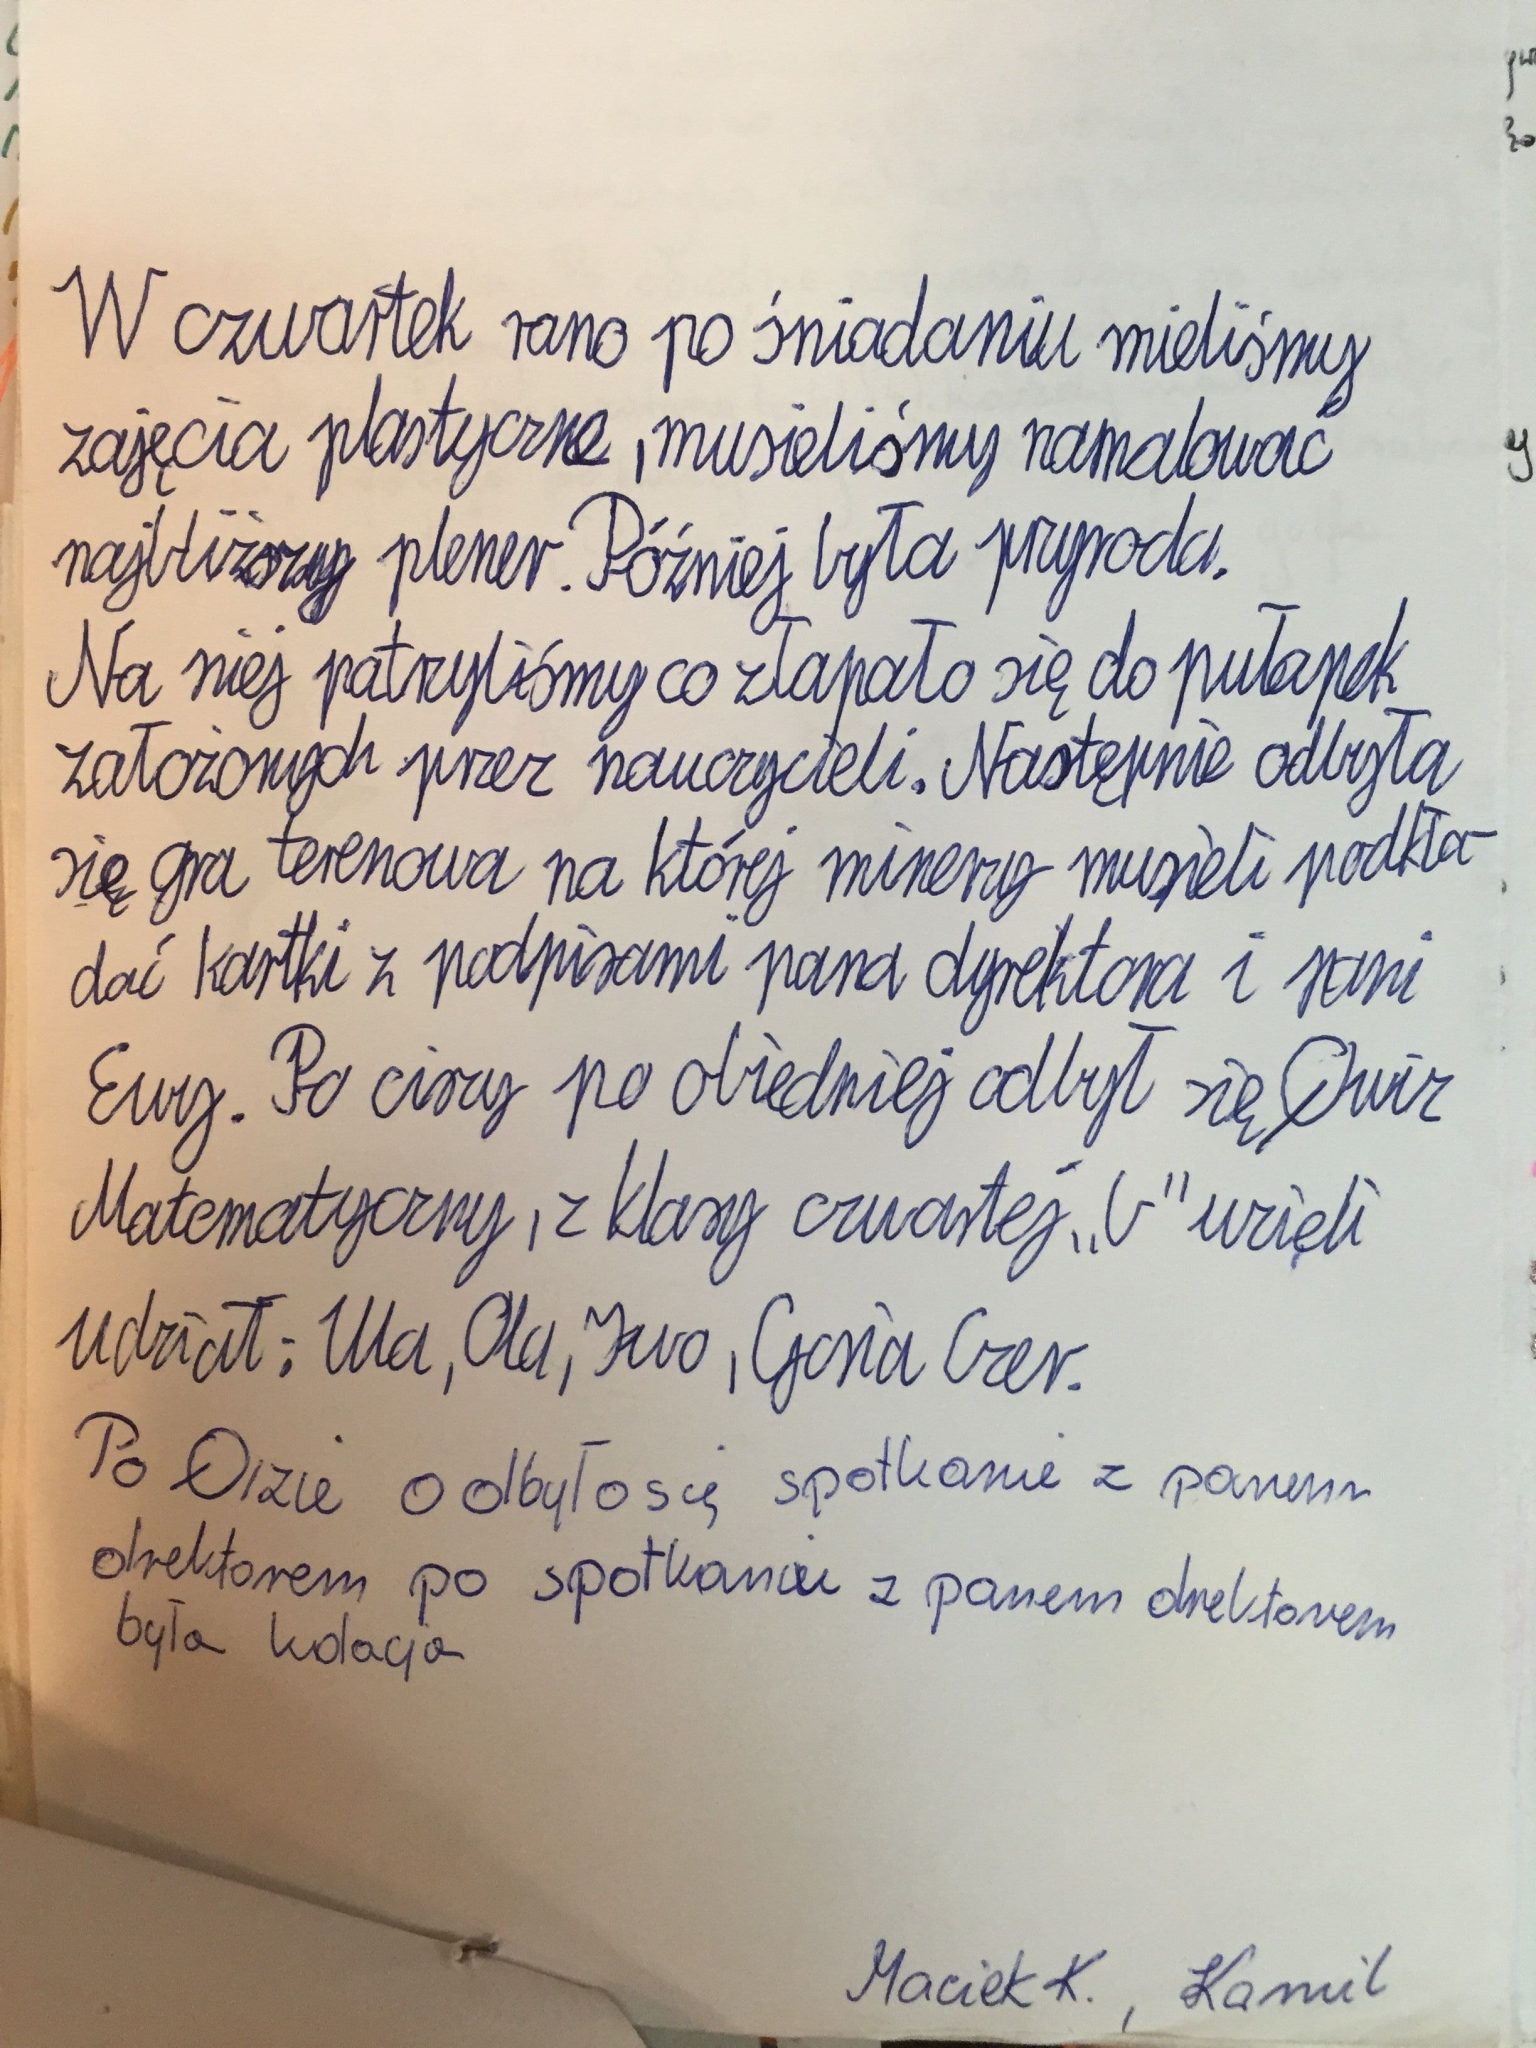 W czwartek rano po śniadaniu mieliśmy
zajęcia plastyczne, musieliśmy namalować
najbliższy plener. Później była przyroda.
Na niej patrzyliśmy co złapało się do pułapek
założonych przez nauczycieli. Następnie odbyła
się gra terenowa na której minerzy musieli podkła-
dać kartki z podpisami pana dyrektora i pani
Ewy. Po ciszy po obiedniej odbył się Quiz
Matematyczny, z klasy czwartej „C" wzięli
udział: Ula, Ola, Iwo, Gosia Czer.
Po Qizie odbyło się spotkanie z panem
drektorem po spotkaniu z panem drektorem
była kolacja
Maciek K., Kamil